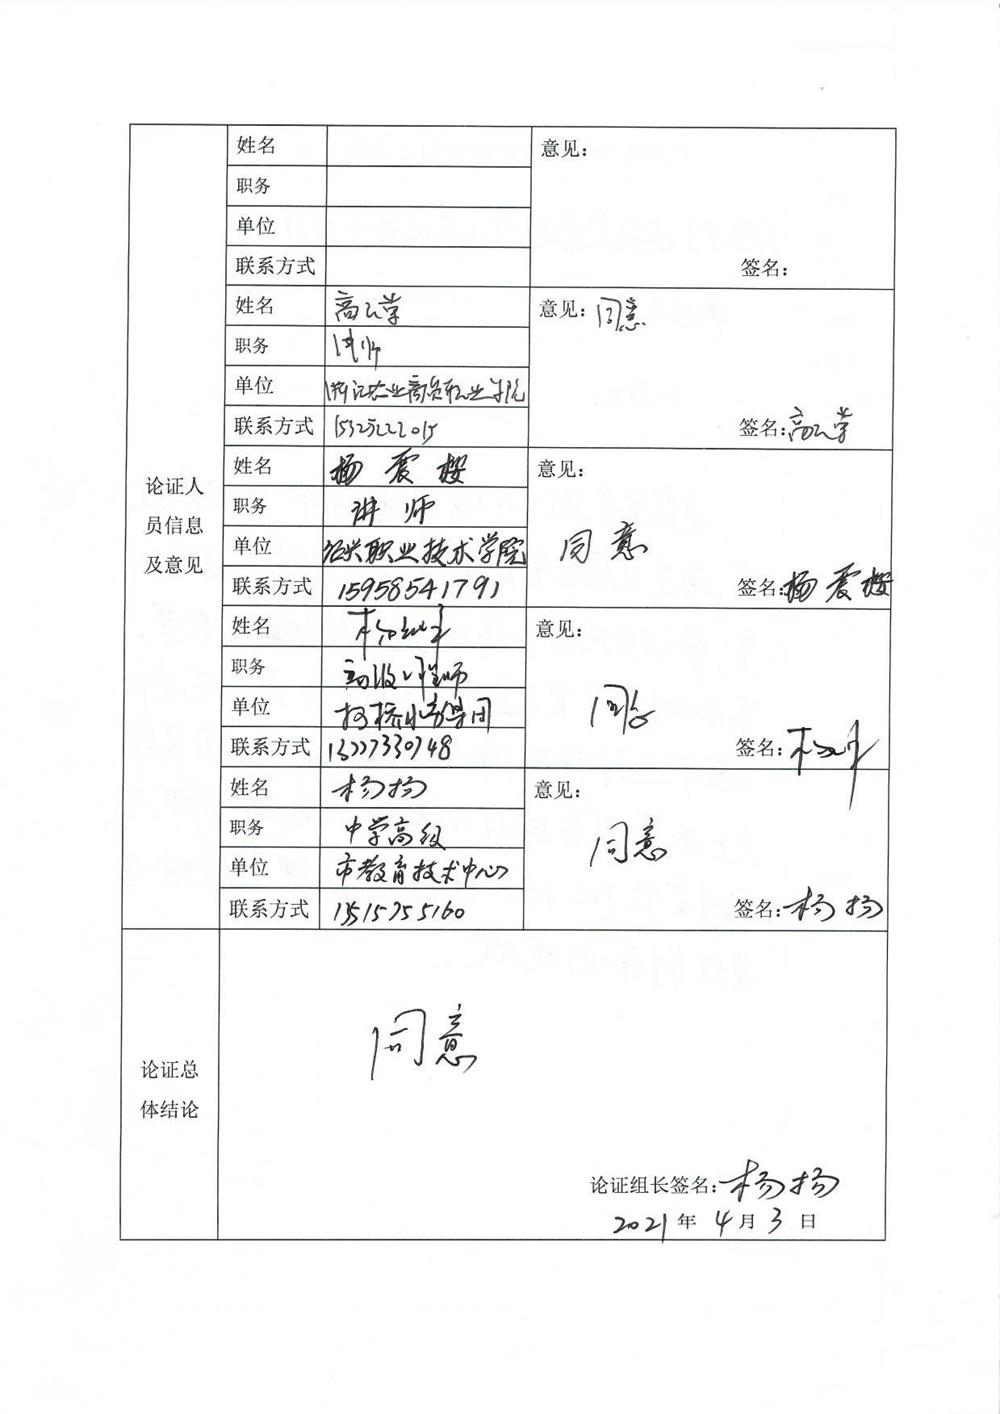 姓名
意见：
职务
单位
联系方式
签名：
姓名
意见：同意
职务 讲师
单位 浙江农业商贸职业学院
联系方式 15325222015
签名：
论证人
员信息
及意见
姓名 杨震
意见：
职务 讲师
单位 绍兴职业技术学院
同意
联系方式 15958541791
签名：杨震
姓名
意见：
职务 高级工程师
单位 柯桥水务集团
同意
联系方式
签名：
姓名 杨扬
意见：
职务 中学高级
同意
单位 市教育技术中心
联系方式 1515755160
签名：杨扬
论证总
体结论
同意
论证组长签名：杨扬
2021年4月3日